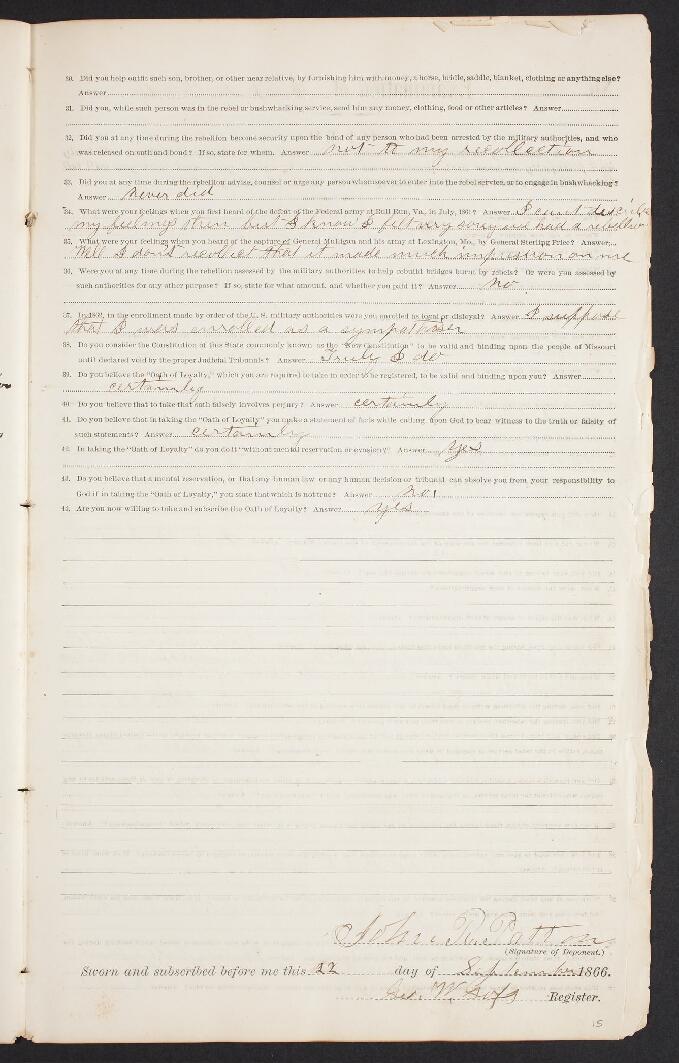 30. Did you help outfit such son, brother, or other near relative, by furnishing him with money, a horse, bridle, saddle, blanket, clothing or anything else?
Answer
31. Did you, while such person was in the rebel or bushwhacking service, send him any money, clothing, food or other articles? Answer
32. Did you at any time during the rebellion become security upon the bond of any person who had been arrested by the military authorities, and who
was released on oath and bond? If so, state for whom. Answer not to my recollection
33. Did you at any time during the rebellion advise, counsel or urge any person whomsoever to enter into the rebel service, or to engage in bushwhacking?
Answer Never did
34. What were your feelings when you first heard of the defeat of the Federal army at Bull Run, Va., in July, 1861? Answer I can't describe
my feelings then but I know I felt very sorry we had a rebellion
35. What were your feelings when you heard of the capture of General Mulligan and his army at Lexington, Mo., by General Sterling Price? Answer,
Well I don't recollect that it made much impression on me
36. Were you at any time during the rebellion assessed by the military authorities to help rebuild bridges burnt by rebels? Or were you assessed by
such authorities for any other purpose? If so, state for what amount, and whether you paid it? Answer No
37. In 1862, in the enrollment made by order of the U. S. military authorities were you enrolled as loyal or disloyal? Answer I suppose
that I was enrolled as a sympathiser
38. Do you consider the Constitution of this State commonly known as the "New Constitution" to be valid and binding upon the people of Missouri
until declared void by the proper Judicial Tribunals? Answer Truly I do
39. Do you believe the "Oath of Loyalty," which you are required to take in order to be registered, to be valid and binding upon you? Answer
certainly
40. Do you believe that to take that oath falsely involves perjury? Answer certainly
41. Do you believe that in taking the "Oath of Loyalty" you make a statement of facts while calling upon God to bear witness to the truth or falsity of
such statements? Answer certainly
42. In taking the "Oath of Loyalty" do you do it "without mental reservation or evasion?" Answer Yes
43. Do you believe that a mental reservation, or that any human law or any human decision or tribunal can absolve you from your responsibility to
God if in taking the "Oath of Loyalty," you state that which is not true? Answer no
44. Are you now willing to take and subscribe the Oath of Loyalty? Answer yes
John R. Patton
(Signature of Deponent.)
Sworn and subscribed before me this 22 day of September 1866.
Geo. W. Register.
15